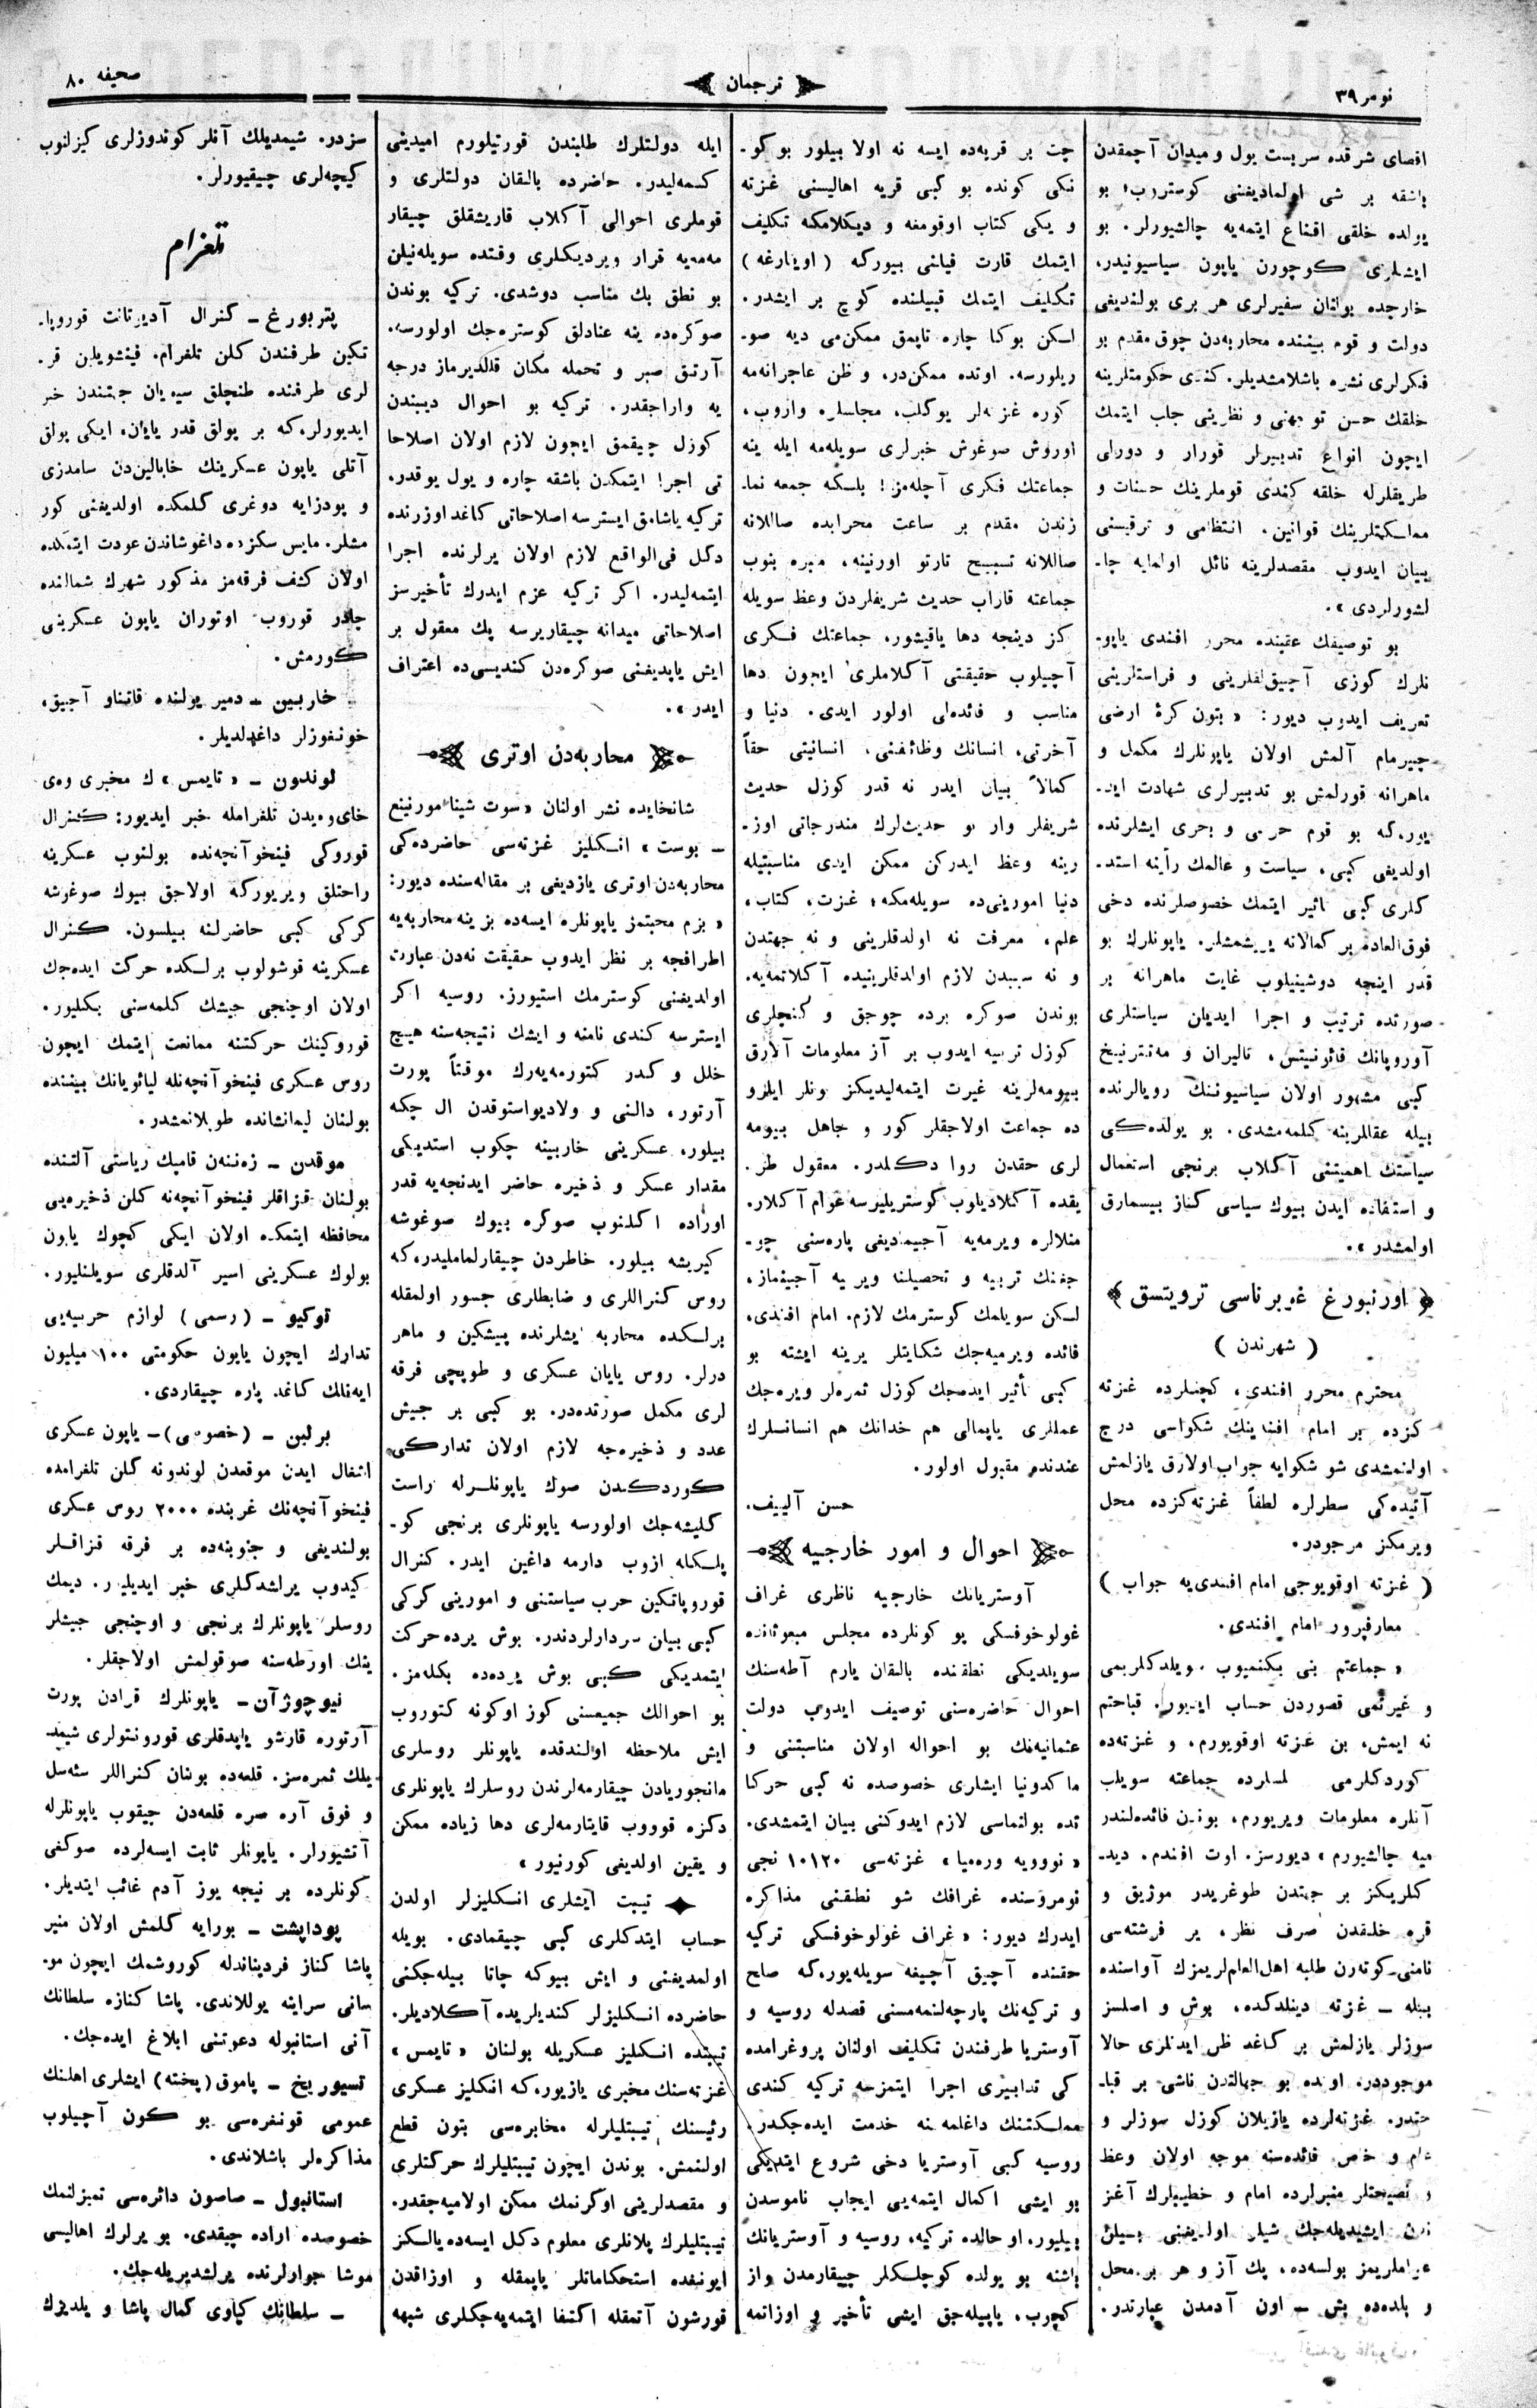 نومر ٣٩
ترجمان
صحیفه ٨٠
اقصای شرقده سربست یول و میدان آچمقدن
باشقه بر شی اولمادیغنی کوستروب، بو
یولده خلقی اقناع ایتمه‌یه چالشیورلر. بو
ایشلری کوچورن یاپون سیاسیونیدر.
خارجده بولنان سفیرلری هر بری بولندیغی
دولت و قوم بیننده محاربه‌دن چوق مقدم بو
فکرلری نشره باشلامشدیلر. کندی حکومتلرینه
خلقك حسن توجهنی و نظرینی جلب ایتمك
ایچون انواع تدبیرلر قورار و دورلی
طریقلرله خلقه کندی قوملرینك حسنات و
مملکتلرینك قوانین. انتظامی و ترقیسنی
بیان ایدوب مقصدلرینه نائل اولمایه چا-
لشورلردی».
بو توصیفك عقبنده محرر افندی یاپو-
نلرك کوزی آچیق‌لقلرینی و فراستلرینی
تعریف ایدوب دیور: «بتون کرۀ ارضی
چیرمام آلمش اولان یاپونلرك مکمل و
ماهرانه قورلمش بو تدبیرلری شهادت اید-
یور، که بو قوم حربی و بحری ایشلرنده
اولدیغی کبی، سیاست و عالمك رأینه استد-
کلری کبی تاثیر ایتمك خصوصلرنده دخی
فوق‌العاده بر کمالاته یریشمشلر. یاپونلرك بو
قدر اینچه دوشینیلوب غایت ماهرانه بر
صورتده ترتیب و اجرا ایدیلن سیاستلری
آوروپانك قائونیتس، تالیران و مەتترنیخ
کبی مشهور اولان سیاسیوننك رویالرنده
بیله عقللرینه کلمه‌مشدی. بو یولده‌کی
سیاستك اهمیتنی آکلاب برنجی استعمال
و استفاده ایدن بیوك سیاسی کناز بیسمارق
اولمشدر».
﴿ اورنبورغ غوبرناسی ترویتسق ﴾
( شهرندن )
محترم محرر افندی، کچنلرده غزته
کزده بر امام افندینك شکواسی درج
اولنمشدی شو شکوایه جواب اولارق یازلمش
آتیده‌کی سطرلره لطفاً غزته‌کزده محل
ویرمکز مرجودر.
( غزته اوقویوجی امام افندی‌یه جواب )
معارفپرور امام افندی.
«جماعتم بنی بکنمیوب . ویلدکلریمی
و غیرتمی قصوردن حساب ایدیور. قباحتم
نه ایمش، بن غزته اوقویورم، و غزته‌ده
کوردکلرمی مجلسلرده جماعته سویلب
آنلره معلومات ویریورم، بوندن فائده‌لندر
میه چالشیورم» دیورسز. اوت افندم، دید-
کلریکز بر جهتدن طوغریدر موژیق و
قره خلقدن صرف نظر، یر فرشته‌سی
نامنی کوته‌رن طلبه اهل‌العلم‌لریمزك آراسنده
بیله – غزته دینلدکده، بوش و اصلسز
سوزلر یازلمش بر کاغد ظن ایدنلری حالا
موجوددر. اوده بو جهالتدن ناشی بر قبا-
حتدر. غزته‌لرده یازیلان کوزل سوزلر و
عام و خاص فائده‌سنه موجه اولان وعظ
و نصیحتلر منبرلرده امام و خطیبلرك آغز
ندن ایشیدیله‌جك شیلر اولدیغنی بیلن
عواملریمز بولسه‌ده، پك آز و هر بر محل
و بلده‌ده بش – اون آدمدن عبارتدر.
چت بر قریه‌ده ایسه نه اولا بیلور بو کو-
نکی کونده بو کبی قریه اهالیسنی غزته
و یکی کتاب اوقومغه و دیکلامکه تکلیف
ایتمك قارت قیاتنی بیورگه (اوینارغه)
تکلیف ایتمك قبیلنده کوچ بر ایشدر.
لسکن بوکا چاره تاپمق ممکن‌می دیه صو-
ریلورسه. اوتده ممکن‌در، و ظن عاجزانه‌مه
کوره غزته‌لر یوگلب، مجلسلره واروب،
اوروش صوغوش خبرلری سویله‌مه ایله ینه
جماعتك فکری آچله‌مز! بلسکه جمعه نما-
زندن مقدم بر ساعت محرابده صاللانه
صاللانه تسبیح تارتو اورنینه، منبره بنوب
جماعته قاراب حدیث شریفلردن وعظ سویله
کز دینجه دها یاقیشور، جماعتك فکری
آچیلوب حقیقتی آکلاملری ایچون دها
مناسب و فائده‌لی اولور ایدی. دنیا و
آخرتی، انسانك وظائفنی، انسانیتی حقاً
کمالاً بیان ایدر نه قدر کوزل حدیث
شریفلر وار. بو حدیث‌لرك مندرجاتی اوز-
رینه وعظ ایدرکن ممکن ایدی مناسبتیله
دنیا امورینی‌ده سویله‌مکه، غزت، کتاب،
علم، معرفت نه اولدقلرینی و نه جهتدن
و نه سببدن لازم اولدقلرینیده آکلاتمه‌یه.
بوندن صوکره برده چوجق و گنجلری
کوزل تربیه ایدوب بر آز معلومات آلارق
بیومه‌لرینه غیرت ایتمه‌لیدیکز. ونلر ایلرو
ده جماعت اولاجقلر کور و جاهل بیومه
لری حقدن روا دکلدر. معقول طر-
یقده آکلادیلوب کوستریلیرسه عوام آکلار.
منلالره ویرمه‌یه آجیمادیغی پاره‌سنی چو-
جغنك تربیه و تحصیلنه ویرمیه آجیماز،
لسکن سویلمك گوسترمك لازم. امام افندی،
فائده ویرمیه‌جك شکایتلر یرینه ایشته بو
کبی تأثیر ایده‌جك کوزل ثمره‌لر ویره‌جك
عمللری یاپمالی هم خدانك هم انسانسلرك
عندنده مقبول اولور.
حسن آلییف.
احوال و امور خارجیه
آوستریانك خارجیه ناظری غراف
غولوخوفسکی بو کونلرده مجلس مبعوثانده
سویلدیکی نطقنده بالقان یارم آطه‌سنك
احوال حاضره‌سنی توصیف ایدوب دولت
عثمانیه‌نك بو احواله اولان مناسبتنی و
ماکدونیا ایشلری خصوصده نه کبی حرکا
تده بولنماسی لازم ایدوکنی بیان ایتمشدی.
«نوویه وره‌میا» غزته‌سی ١٠١٢٠ نجی
نومروسنده غرافك شو نطقنی مذاکره
ایدرك دیور: «غراف غولوخوفسکی ترکیه
حقنده آچیق آچیغه سویله‌یور، که صلح
و ترکیه‌نك پارچه‌لنمه‌مسنی قصدله روسیه و
آوستریا طرفندن تکلیف اولنان پروغرامده
کی تدابیری اجرا ایتمزسه ترکیه کندی
مملسکتنك داغلمه‌سنه خدمت ایده‌جکدر.
روسیه کبی آوستریا دخی شروع ایتدیکی
بو ایشی اکمال ایتمه‌یی ایجاب ناموسدن
بیلیور. او حالده ترکیه، روسیه و آوستریانك
باشنه بو یولده کوچلسکلر چیقارمدن واز
کچوب، یاپیله‌جق ایشی تأخیر و اوزاتمه
ایله دولتلرك طلبندن قورتیلورم امیدینی
کسمه‌لیدر. حاضرده بالقان دولتلری و
قوملری احوالی آکلاب قاریشقلق چیقار
مه‌مه‌یه قرار ویردیکلری وقتده سویله‌نیلن
بو نطق پك مناسب دوشدی. ترکیه بوندن
صوکره‌ده ینه عنادلق کوستره‌جك اولورسه،
آرتق صبر و تحمله مکان قالدیرماز درجه
یه واراجقدر. ترکیه بو احوال دیبندن
کوزل چیقمق ایچون لازم اولان اصلاحا
تی اجرا ایتمکدن باشقه چاره و یول یوقدر،
ترکیه یاشامق ایسترسه اصلاحاتی کاغد اوزرنده
دکل فی‌الواقع لازم اولان یرلرنده اجرا
ایتمه‌لیدر. اکر ترکیه عزم ایدرك تأخیرسز
اصلاحاتی میدانه چیقاریرسه پك معقول بر
ایش یاپدیغنی صوکره‌دن کندیسی‌ده اعتراف
ایدر».
محاربه‌دن اوتری
شانخایده نشر اولنان «سوت شینا مورنینغ
– پوست» انسکلیز غزته‌سی حاضرده‌کی
محاربه‌دن اوتری یازدیغی بر مقاله‌سنده دیور:
«بزم محبتمز یاپونلره ایسه‌ده بز ینه محاربه‌یه
اطرافجه بر نظر ایدوب حقیقت نه‌دن عبارت
اولدیغنی کوسترمك استیورز. روسیه اکر
ایسترسه کندی نامنه و ایشك نتیجه‌سنه هیچ
خلل و کدر کتورمه‌یه‌رك موقتاً پورت
آرتور، دالنی و ولادیواستوقدن ال چکه
بیلور، عسکرینی خاربینه چکوب استدیکی
مقدار عسکر و ذخیره حاضر ایدنجه‌یه قدر
اوراده اکلنوب صوکره بیوك صوغوشه
کیریشه بیلور. خاطردن چیقارلمامالیدر، که
روس کنراللری و ضابطلری جسور اولمقله
برلسکده محاربه ایشلرنده پیشکین و ماهر
درلر. روس یایان عسکری و طوپچی فرقه
لری مکمل صورتده‌در. بو کبی بر جیش
عدد و ذخیره‌جه لازم اولان تدارکی
کوردکدن صوك یاپونلرله راست
گلیشه‌جك اولورسه یاپونلری برنجی کو-
پلسکله ازوب دارمه داغین ایدر. کنرال
قوروپاتکین حرب سیاستنی و امورینی کرکی
کبی بیان سردارلردندر. بوش یرده حرکت
ایتمدیکی کبی بوش یرده‌ده بکله‌مز.
بو احوالك جمیعسنی کوز اوکونه کتوروب
ایش ملاحظه اولندقده یاپونلر روسلری
مانجوریادن چیقارمه‌لرندن روسلرك یاپونلری
دکزه قوووب قایتارمه‌لری دها زیاده ممکن
و یقین اولدیغی کورنیور»
تیبت ایشلری انسکلیزلر اولدن
حساب ایتدکلری کبی چیقمادی. بویله
اولمدیغنی و ایش بیوکه چاتا بیله‌جکنی
حاضرده انسکلیزلر کندیلریده آکلادیلر.
تیبتده انسکلیز عسکریله بولنان «تایمس»
غزته‌سنك مخبری یازیور، که انکلیز عسکری
رئیسنك تیبتلیلرله مخابره‌سی بتون قطع
اولنمش. بوندن ایچون تیبتلیلرك حرکتلری
و مقصدلرینی اوگرنمك ممکن اولامیه‌جقدر.
تیبتلیلرك پلانلری معلوم دکل ایسه‌ده یالسکز
ایونغده استحکاماتلر یاپمقله و اوزاقدن
قورشون آتمقله اکتفا ایتمه‌یه‌جکلری شبهه
سزدر. شیمدیلك آنلر کوندوزلری کیزلنوب
کیچه‌لری چیقیورلر.
تلغرام
پتربورغ – کنرال آدیوتانت قوروپا-
تکین طرفندن کلن تلغرام. فینشویلین قر-
لری طرفنده طنچلق سیویان جهتندن خبر
ایدیورلر، که بر پولق قدر یایان، ایکی پولق
آتلی یاپون عسکرینك خابالین‌دن سامدزی
و پودزایه دوغری گلمکده اولدیغنی کور
مشلر. مایس سکزده داغوشاندن عودت ایتمکده
اولان کشف فرقه‌مز مذکور شهرك شمالنده
چادر قوروب اوتوران یاپون عسکرینی
کورمش.
خاربین – دمیر یولنده قاتناو آچیق،
خونخوزلر داغیلدیلر.
لوندون – «تایمس»ك مخبری وه‌ی
خای‌وه‌یدن تلغرامله خبر ایدیور: کنرال
قوروکی فینخوآنچه‌نده بولنوب عسکرینه
راحتلق ویریورکه اولاجق بیوك صوغوشه
کرکی کبی حاضرلنه بیلسون. کنرال
عسکرینه قوشولوب برلسکده حرکت ایده‌جك
اولان اوچنجی جیشك کلمه‌سنی بکلیور.
قوروکینك حرکتنه ممانعت ایتمك ایچون
روس عسکری فینخوآنچه‌نله لیائویانك بیننده
بولنان لیانشانده طوپلانمشدر.
موقدن – زه‌ننەن قامپك ریاستی آلتنده
بولنان قزاقلر فینخوآنچه‌نه کلن ذخیره‌یی
محافظه ایتمکده اولان ایکی کچوك یاپون
بولوك عسکرینی اسیر آلدقلری سویلنلیور.
توکیو – (رسمی) لوازم حربیه‌یی
تدارك ایچون یاپون حکومتی ١٠٠ میلیون
ایەنالك کاغد پاره چیقاردی.
برلین – (خصوصی) – یاپون عسکری
اشغال ایدن موقعدن لوندونه گلن تلغرامده
فینخوآنچه‌نك غربنده ٢٠٠٠ روس عسکری
بولندیغی و جنوبنده‌ده بر فرقه قزاقلر
کیدوب یرلشدکلری خبر ایدیلیور. دیمك
روسلر یاپونلرك برنجی و اوچنجی جیشلر
ینك اورطه‌سنه صوقولمش اولاجقلر.
نیوچوژآن – یاپونلرك قرادن پورت
آرتوره قارشو یاپدقلری قورونتولری شیمد-
یلك ثمره‌سز. قلعه‌ده بولنان کنراللر سته‌سل
و فوق آره صره قلعه‌دن چیقوب یاپونلرله
آتشیورلر. یاپونلر ثابت ایسه‌لرده صوکغی
کونلرده بر نیچه یوز آدم غائب ایتدیلر.
بوداپشت – بورایه گلمش اولان منیر
پاشا کناز فردیناندله کوروشمك ایچون مو-
سانی سراینه یوللاندی. پاشا کنازه سلطانك
آنی استانبوله دعوتنی ابلاغ ایده‌جك.
تسیوریخ – پاموق (پخته) ایشلری اهلنك
عمومی قونفره‌سی بو کون آچیلوب
مذاکره‌لر باشلاندی.
استانبول – صاصون دائره‌سی تمیزلنمك
خصوصده اراده چیقدی. بو یرلرك اهالیسی
موشا جوارلرنده یرلشدیریله‌جك.
– سلطانك کیاوی کمال پاشا و یلدیزك